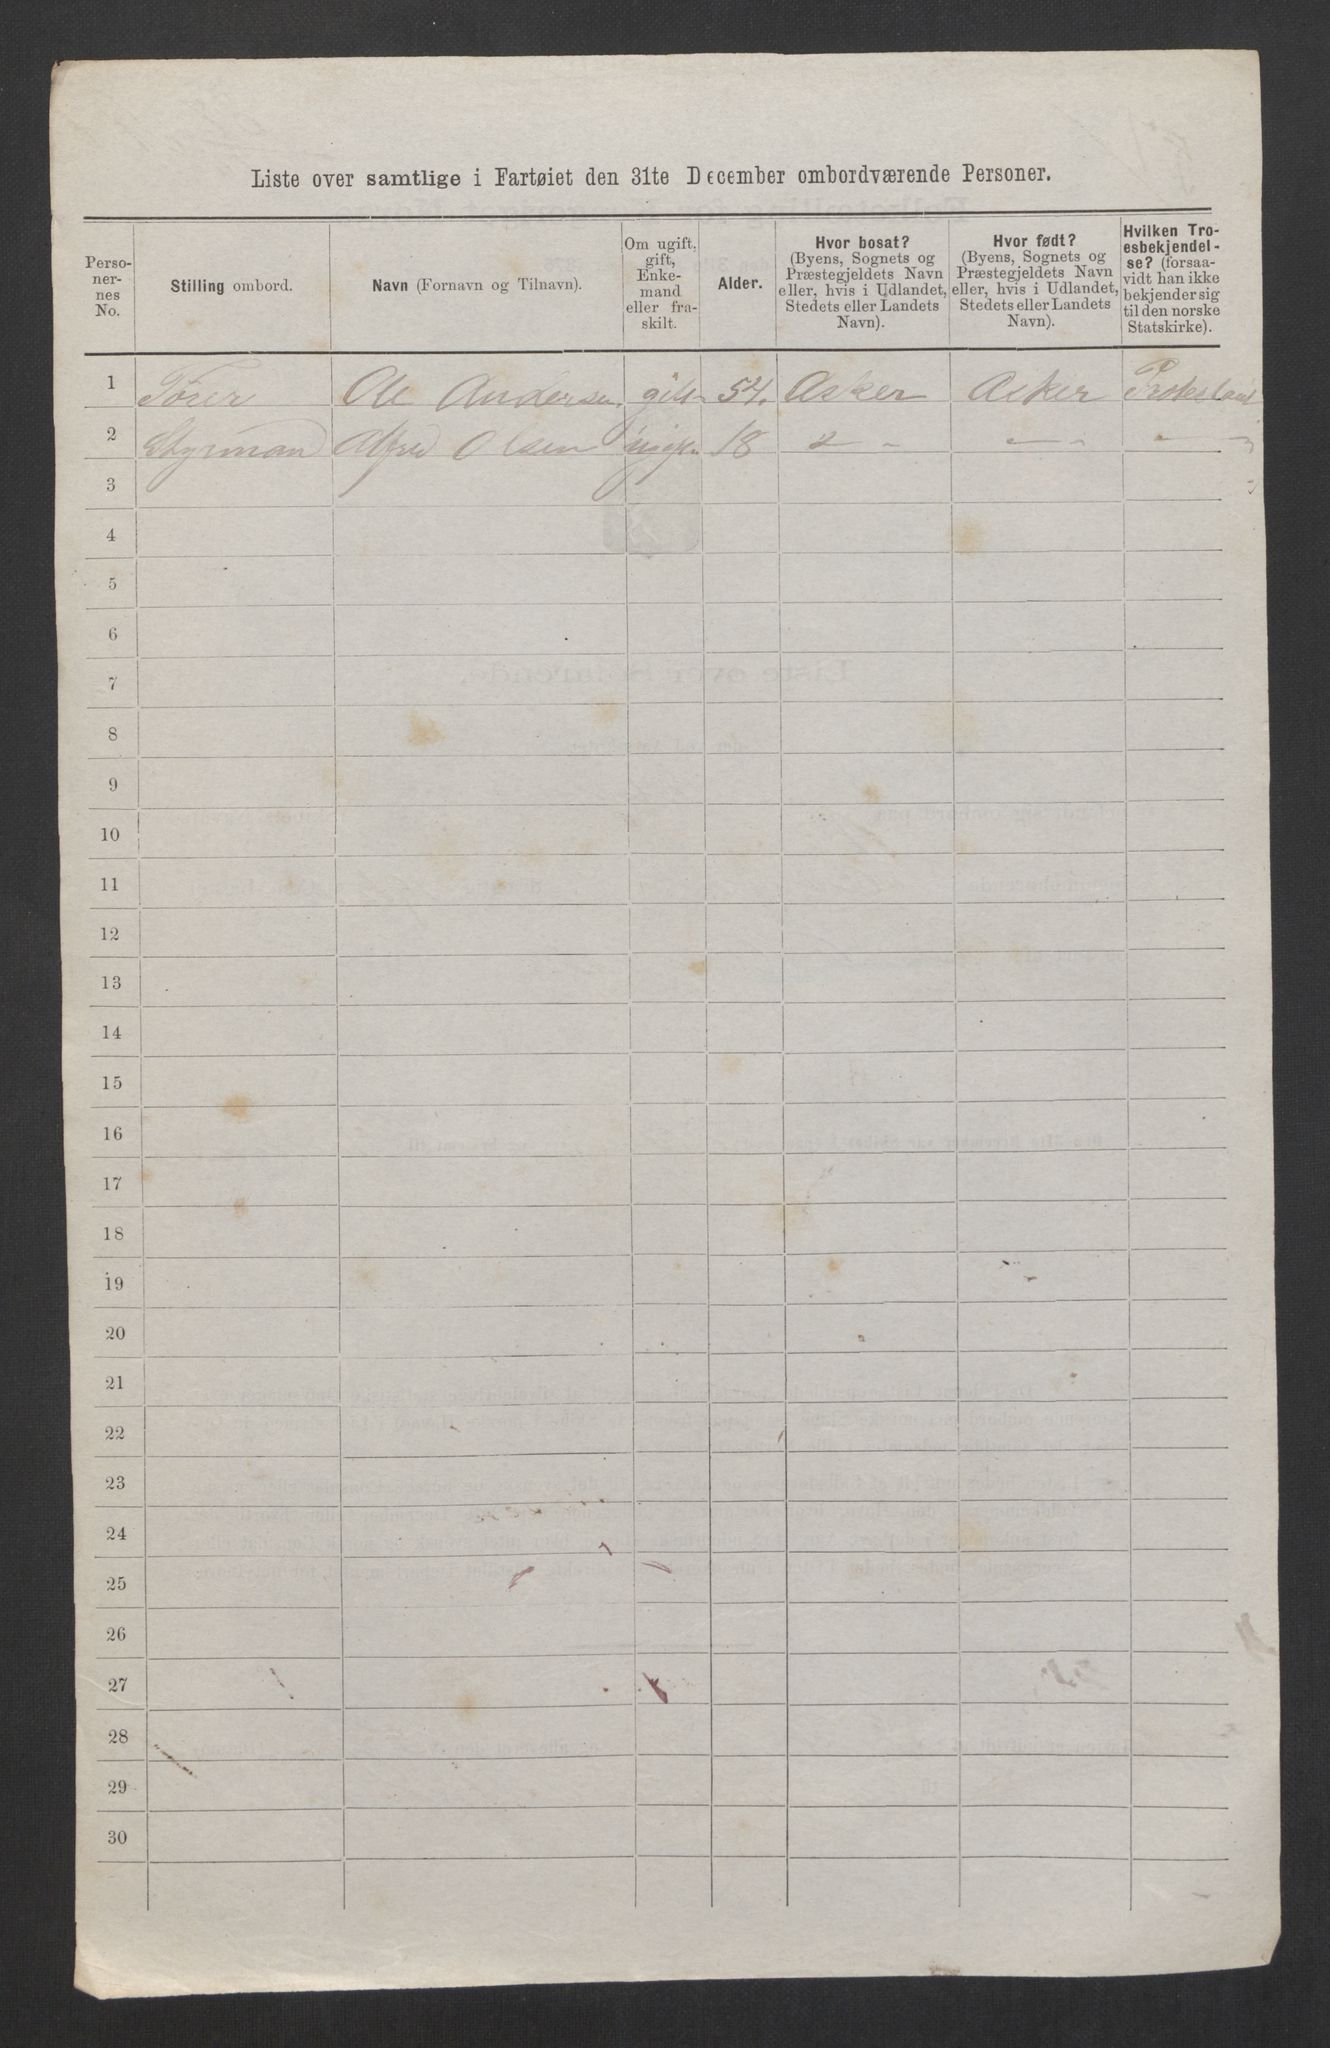 Liste over samtlige i Fartøiet den 31te December ombordværende Personer.
Perso-
ner-
nes
No.
Stilling ombord.
Navn (Fornavn og Tilnavn).
Om ugift,
gift,
Enke-
mand
eller fra-
skilt.
Alder.
Hvor bosat?
(Byens, Sognets og
Præstegjeldets Navn
eller, hvis i Udlandet,
Stedets eller Landets
Navn).
Hvor født?
(Byens, Sognets og
Præstegjeldets Navn
eller, hvis i Udlandet,
Stedets eller Landets
Navn).
Hvilken Tro-
esbekjendel-
se? (forsaa-
vidt han ikke
bekjender sig
til den norske
Statskirke).
1 Fører Ole Andersen gift 54. Asker Asker Protestant
2 Styrman Alfred Olsen ugift 18 " - - - - -
3
4
5
6
7
8
9
10
11
12
13
14
15
16
17
18
19
20
21
22
23
24
25
26
27
28
29
30